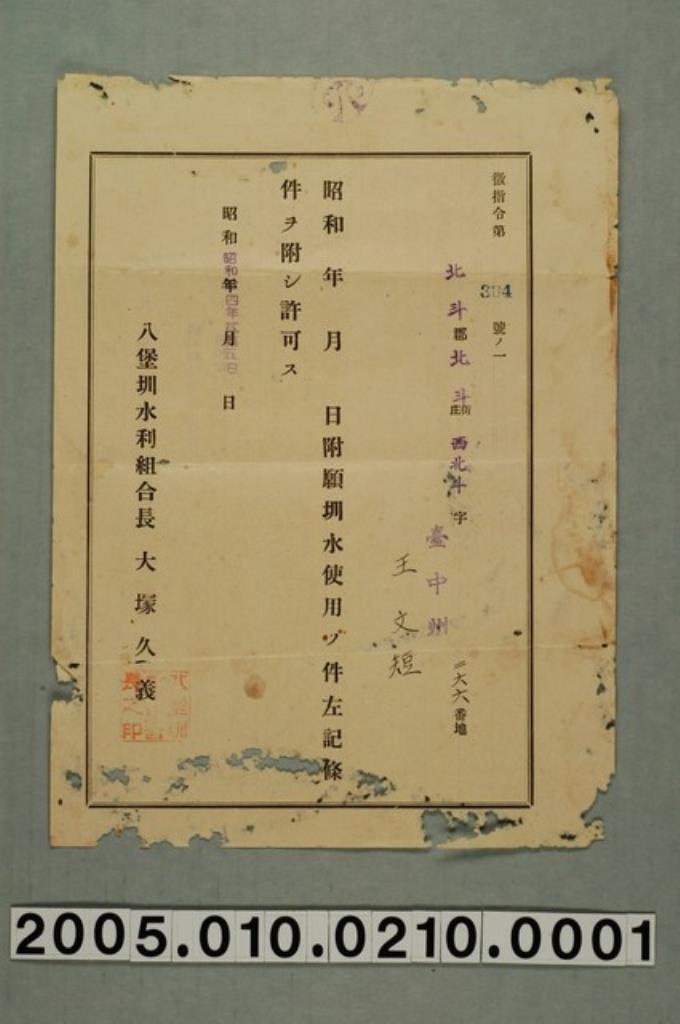 徵指令第 394 號ノ一
北斗郡北斗街庄西北斗字 二六六番地
臺中州
王文短
昭和 年 月 日附願圳水使用ノ件左記條
件ヲ附シ許可ス
昭和 年 月 日
八堡圳水利組合長 大塚久義
2005.010.0210.0001